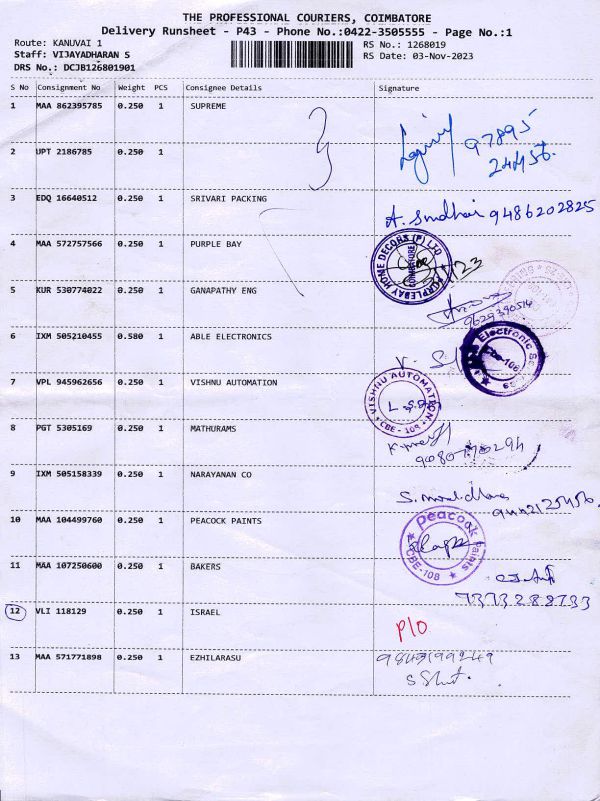 THE PROFESSIONAL COURIERS, COIMBATORE
Delivery Runsheet - P43 - Phone No.:0422-3505555 - Page No.:1
Route: KANUVAI 1
Staff: VIJAYADHARAN S
DRS No.: DCJB126801901
RS No.: 1268019
RS Date: 03-Nov-2023
S No Consignment No Weight PCS Consignee Details Signature
1 MAA 862395785 0.250 1 SUPREME
97895
2 UPT 2186785 0.250 1
3 EDQ 16640512 0.250 1 SRIVARI PACKING
9486202825
4 MAA 572757566 0.250 1 PURPLE BAY
PURPLEBAY HOME DECORS (P) LTD
COIMBATORE
5 KUR 530774022 0.250 1 GANAPATHY ENG
9629390514
6 IXM 505210455 0.580 1 ABLE ELECTRONICS
Electronic
CBE-108
7 VPL 945962656 0.250 1 VISHNU AUTOMATION
VISHNU AUTOMATION
CBE - 109
8 PGT 5305169 0.250 1 MATHURAMS
9 IXM 505158339 0.250 1 NARAYANAN CO
10 MAA 104499760 0.250 1 PEACOCK PAINTS
Peacock Paints
CBE-108
11 MAA 107250600 0.250 1 BAKERS
7373288733
12 VLI 118129 0.250 1 ISRAEL
P/O
13 MAA 571771898 0.250 1 EZHILARASU